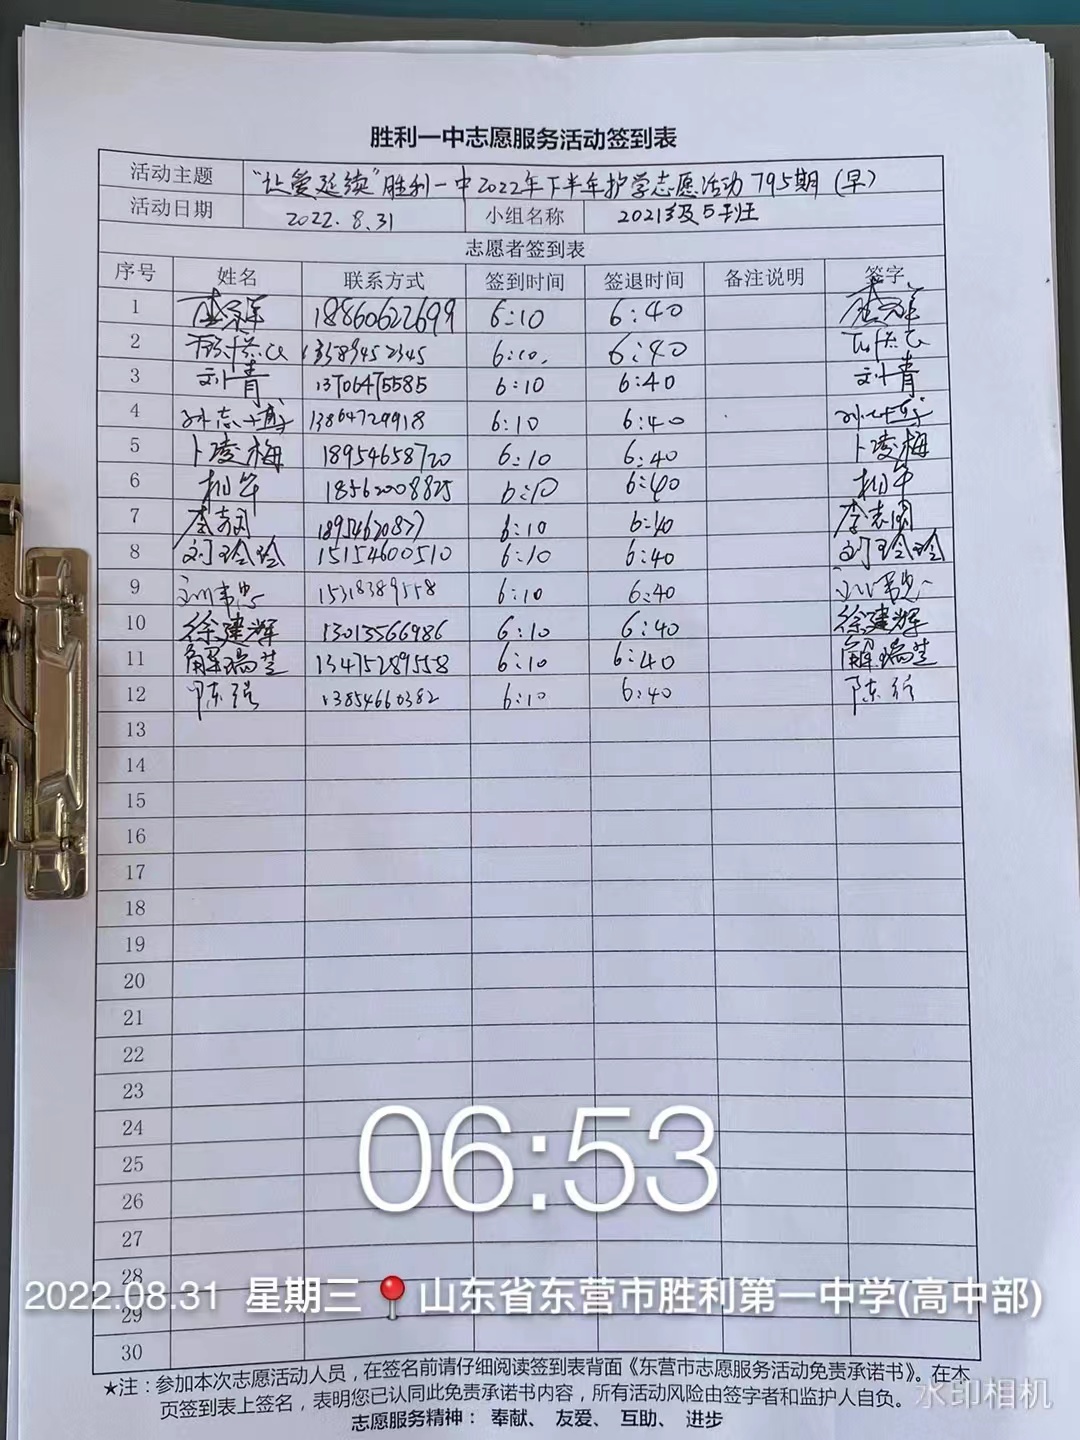 胜利一中志愿服务活动签到表
活动主题 “让爱延续”胜利一中2022年下半年护学志愿活动795期（早）
活动日期 2022.8.31 小组名称 2021级5班
志愿者签到表
序号 姓名 联系方式 签到时间 签退时间 备注说明 签字
1 18860622699 6:10 6:40
2 13589452345 6:10. 6:40
3 刘青 13706475585 6:10 6:40 刘青
4 孙志博 13864729918 6:10 6:40
5 卜凌梅 18954658720 6:10 6:40 卜凌梅
6 18562008825 6:10 6:40
7 李志国 1895462087 6:10 6:40 李志国
8 刘玲玲 15154600510 6:10 6:40 刘玲玲
9 15318389558 6:10 6:40
10 徐建辉 13013566986 6:10 6:40 徐建辉
11 解瑞芝 13475289558 6:10 6:40 解瑞芝
12 陈强 13854660382 6:10 6:40 陈强
13
14
15
16
17
18
19
20
21
22
23
24
25
26
27
28
29
30
06:53
2022.08.31 星期三 山东省东营市胜利第一中学(高中部)
★注：参加本次志愿活动人员，在签名前请仔细阅读签到表背面《东营市志愿服务活动免责承诺书》。在本
页签到表上签名，表明您已认同此免责承诺书内容，所有活动风险由签字者和监护人自负。
志愿服务精神： 奉献、 友爱、 互助、 进步
水印相机